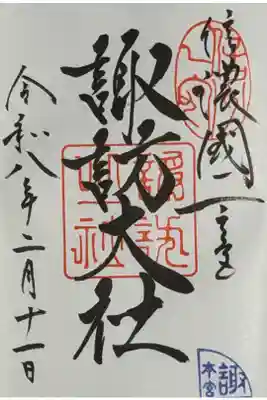 信濃國一之宮
諏訪大社
令和八年二月十一日
諏訪
大社
諏
本宮